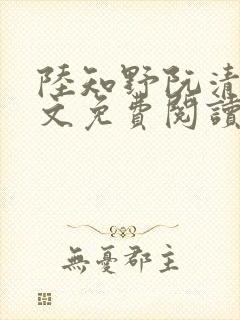 陸知野阮清
文免費閱讀
無憂郡主